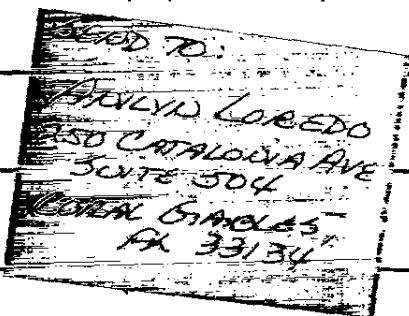 SEND TO:
ANILYN LOREDO
250 CATALONIA AVE
SUITE 504
CORAL GABLES
FL 33134